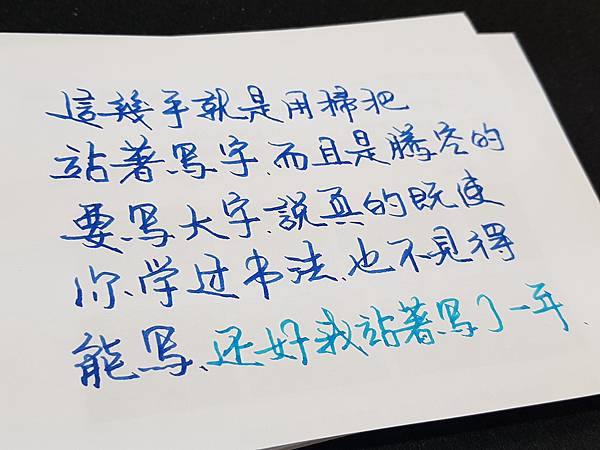 這幾乎就是用掃把
站著写字、而且是騰空的
要写大字、說真的既使
你、学过书法、也不見得
能写、还好我站著写了一年.